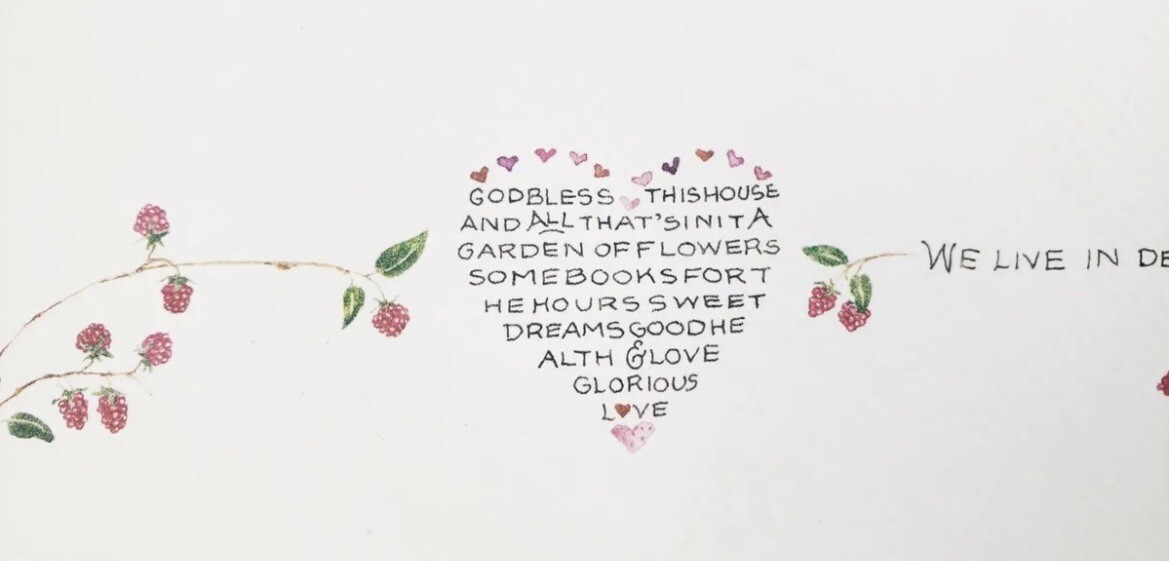 GODBLESS THISHOUSE
AND ALL THAT'SINITA
GARDEN OFFLOWERS
SOMEBOOKSFORT
HEHOURSSWEET
DREAMSGOODHE
ALTH &LOVE
GLORIOUS
L♥VE
WE LIVE IN DE